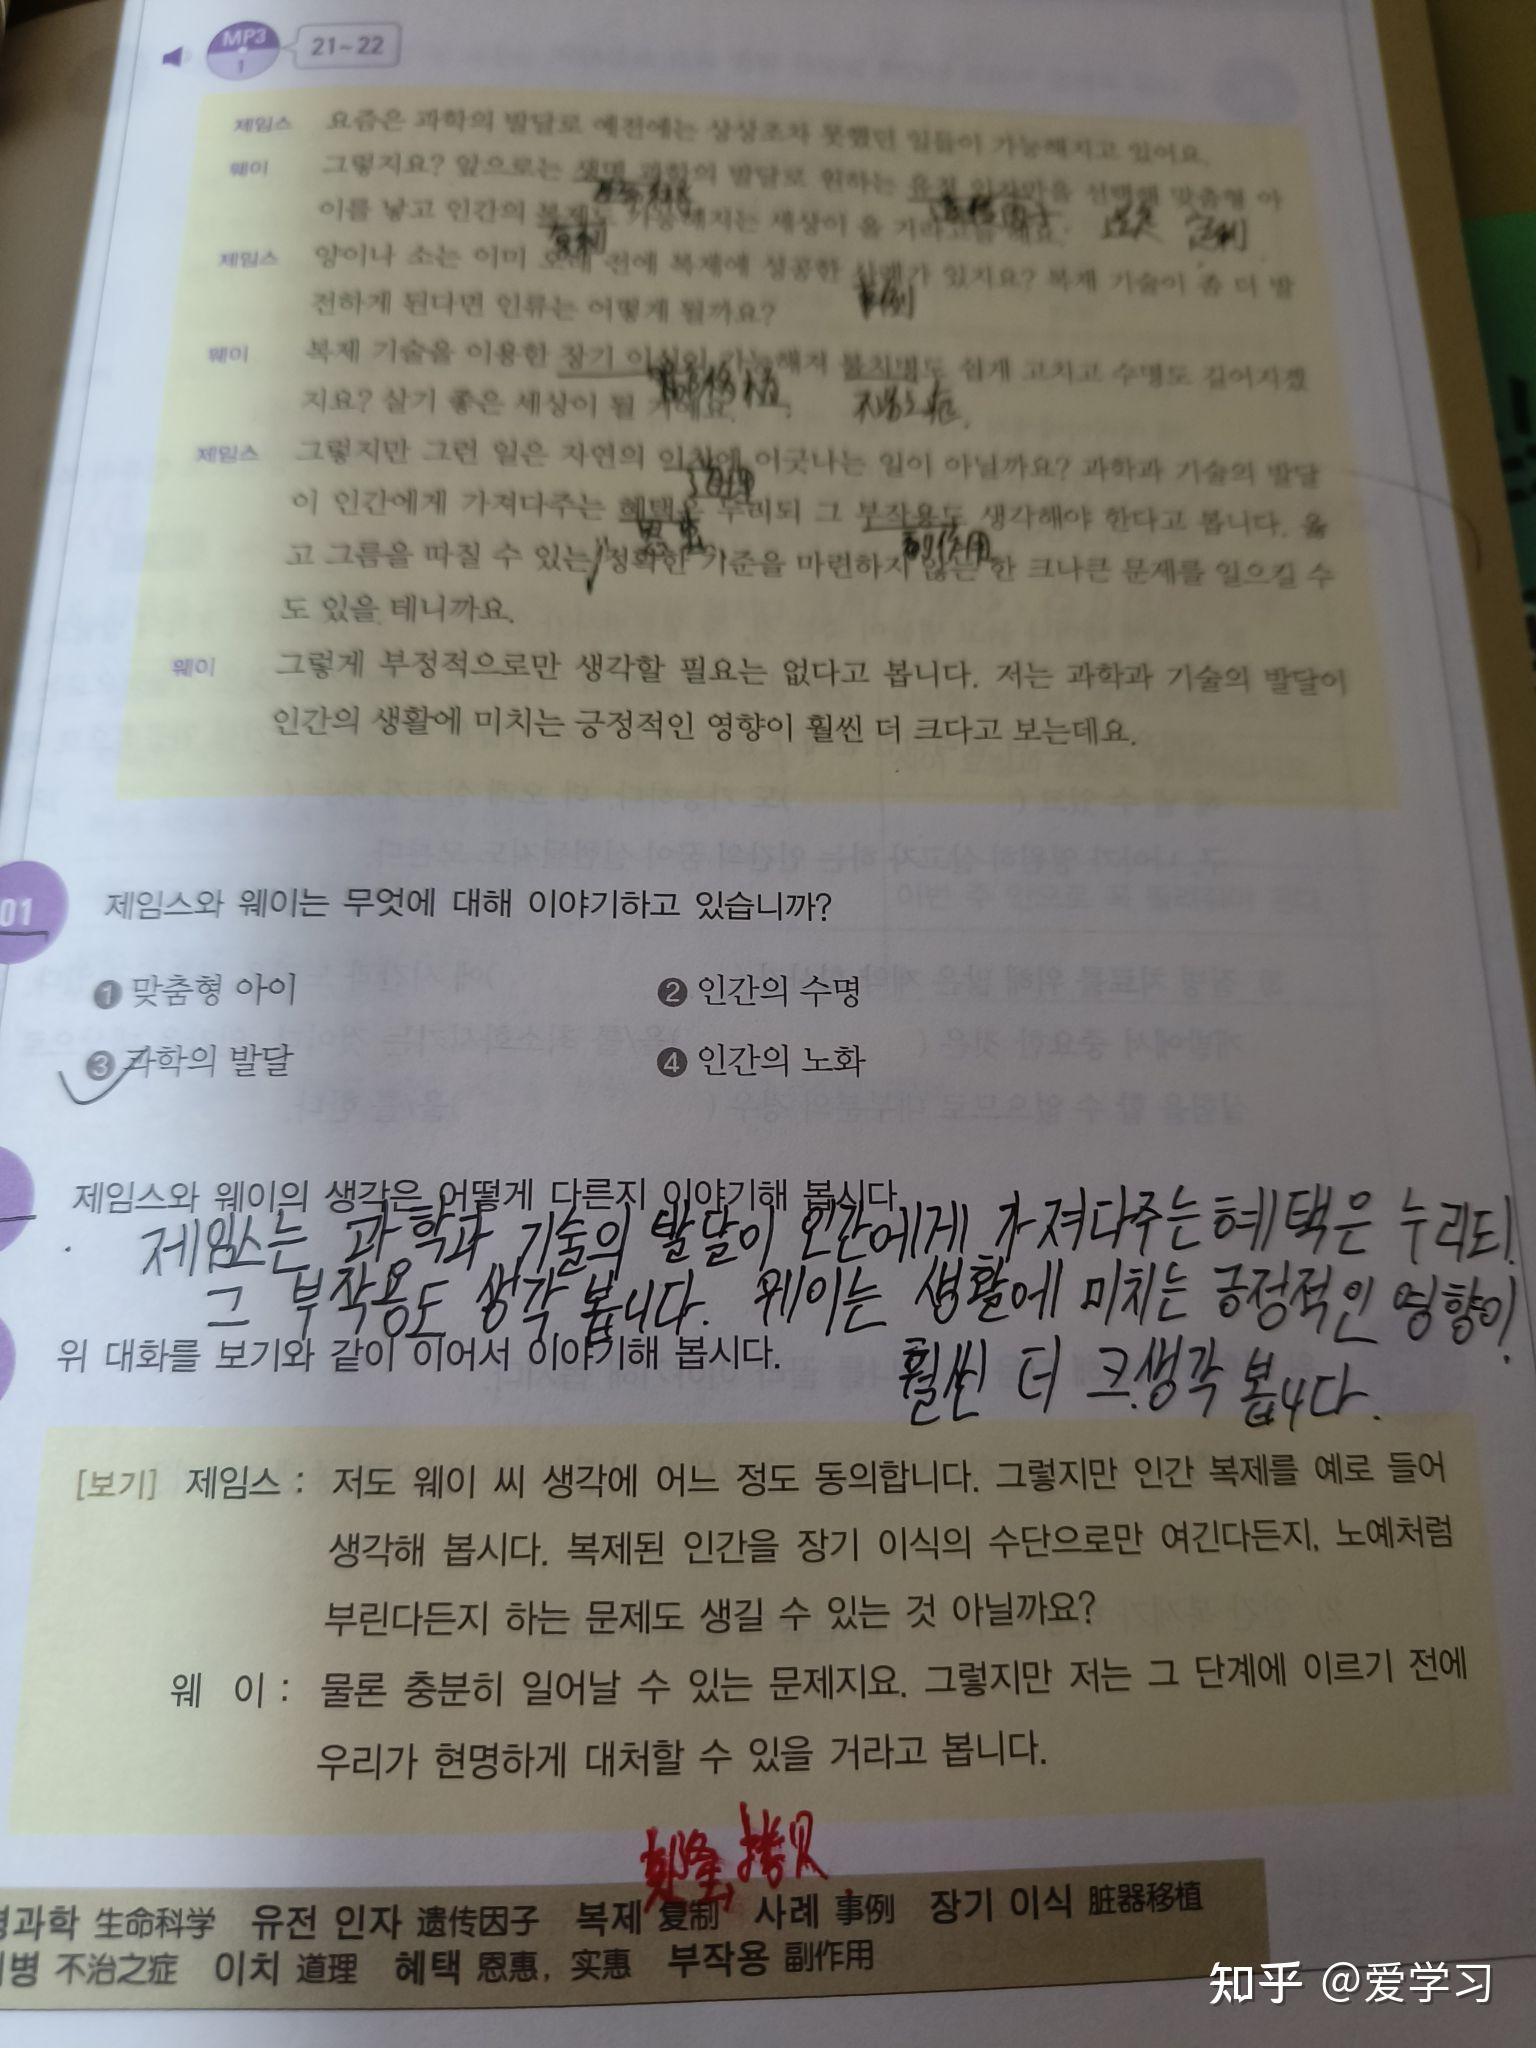 MP3 1 21~22
제임스 요즘은 과학의 발달로 예전에는 상상조차 못했던 일들이 가능해지고 있어요.
웨이 그렇지요? 앞으로는 생명 과학의 발달로 원하는 유전 인자만을 선택해 맞춤형 아
이를 낳고 인간의 복제도 가능해지는 세상이 올 거라고들 해요.
复制
제임스 양이나 소는 이미 오래 전에 복제에 성공한 사례가 있지요? 복제 기술이 좀 더 발
事例
전하게 된다면 인류는 어떻게 될까요?
웨이 복제 기술을 이용한 장기 이식이 가능해져 불치병도 쉽게 고치고 수명도 길어지겠
지요? 살기 좋은 세상이 될 거예요.
不治之症.
제임스 그렇지만 그런 일은 자연의 이치에 어긋나는 일이 아닐까요? 과학과 기술의 발달
道理
이 인간에게 가져다주는 혜택은 누리되 그 부작용도 생각해야 한다고 봅니다. 옳
恩惠 副作用
고 그름을 따질 수 있는 정확한 기준을 마련하지 않는 한 크나큰 문제를 일으킬 수
도 있을 테니까요.
웨이 그렇게 부정적으로만 생각할 필요는 없다고 봅니다. 저는 과학과 기술의 발달이
인간의 생활에 미치는 긍정적인 영향이 훨씬 더 크다고 보는데요.
01 제임스와 웨이는 무엇에 대해 이야기하고 있습니까?
❶ 맞춤형 아이 ❷ 인간의 수명
❸ 과학의 발달 ❹ 인간의 노화
제임스와 웨이의 생각은 어떻게 다른지 이야기해 봅시다.
제임스는 과학과 기술의 발달이 인간에게 가져다주는 혜택은 누리되
그 부작용도 생각 봅니다. 웨이는 생활에 미치는 긍정적인 영향이
위 대화를 보기와 같이 이어서 이야기해 봅시다.
훨씬 더 크.생각 봅니다.
[보기] 제임스 : 저도 웨이 씨 생각에 어느 정도 동의합니다. 그렇지만 인간 복제를 예로 들어
생각해 봅시다. 복제된 인간을 장기 이식의 수단으로만 여긴다든지, 노예처럼
부린다든지 하는 문제도 생길 수 있는 것 아닐까요?
웨 이 : 물론 충분히 일어날 수 있는 문제지요. 그렇지만 저는 그 단계에 이르기 전에
우리가 현명하게 대처할 수 있을 거라고 봅니다.
克隆, 拷贝
과학 生命科学 유전 인자 遗传因子 복제 复制 사례 事例 장기 이식 脏器移植
병 不治之症 이치 道理 혜택 恩惠, 实惠 부작용 副作用
知乎 @爱学习